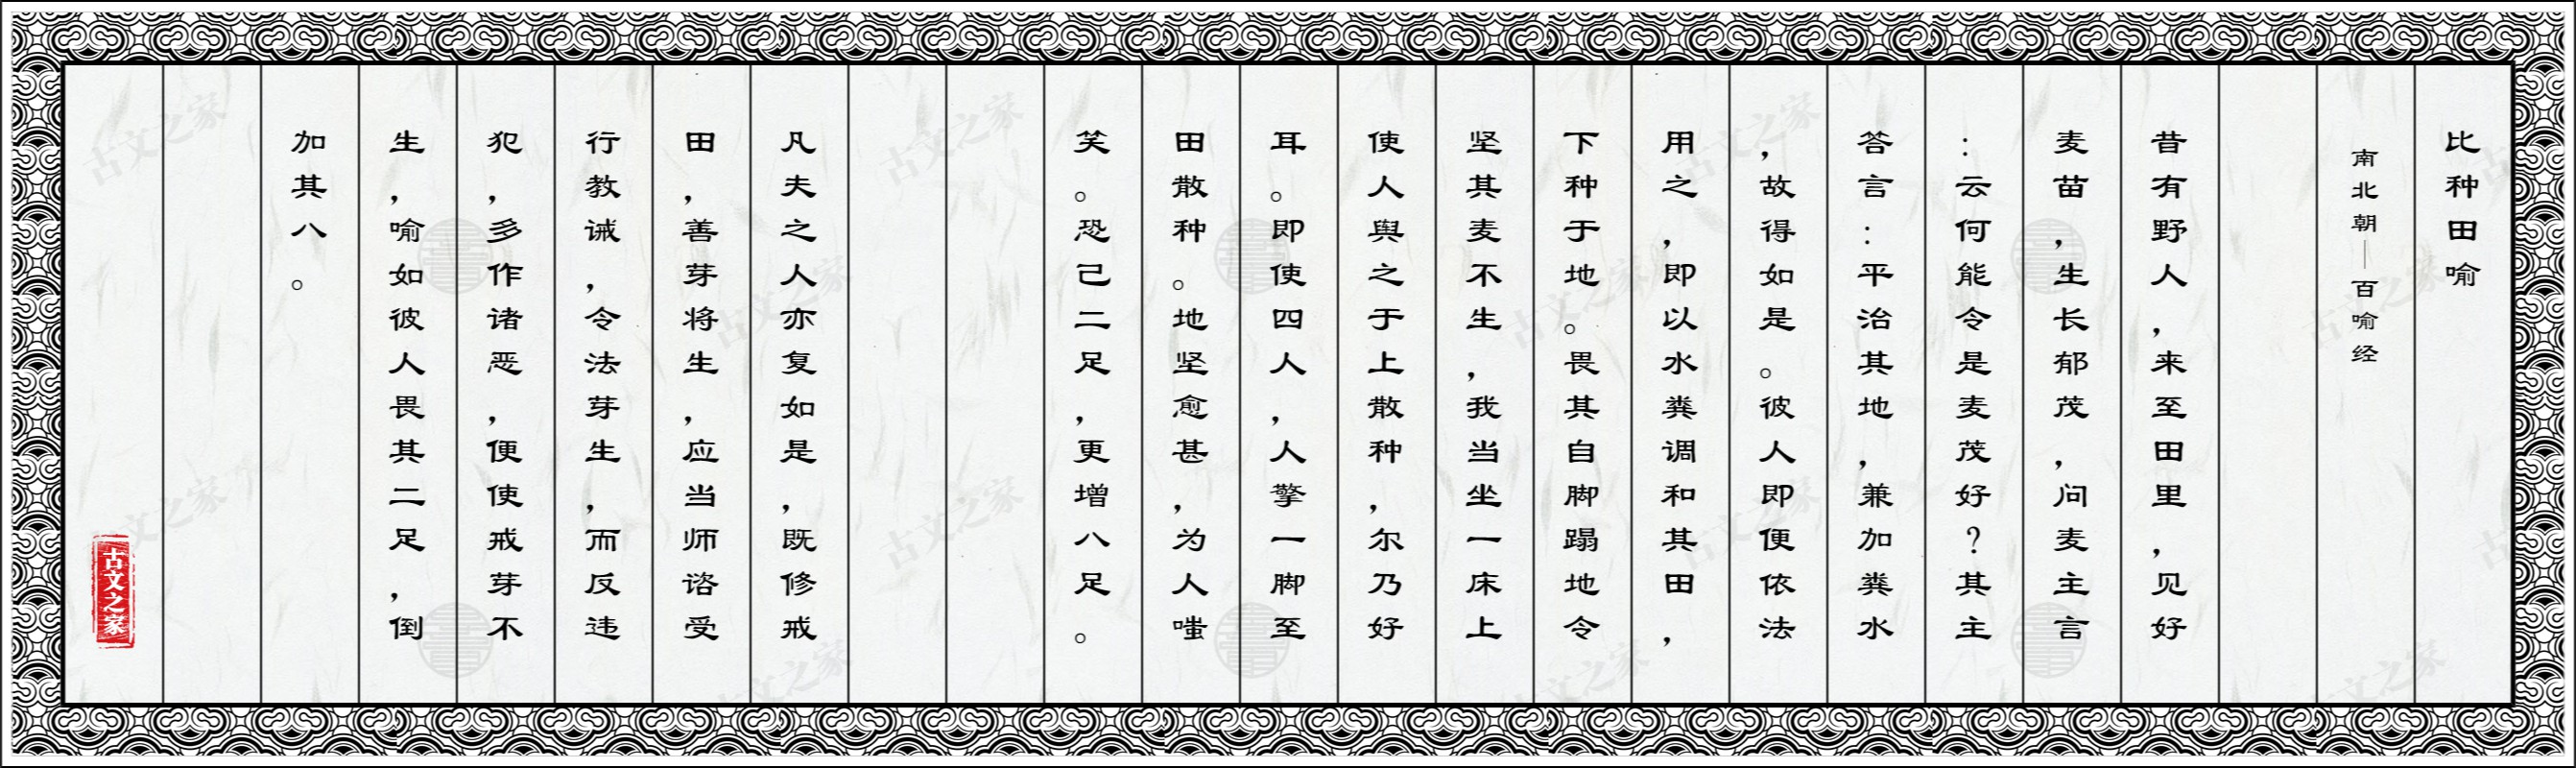 比种田喻
南北朝｜百喻经
昔有野人，来至田里，见好
麦苗，生长郁茂，问麦主言
：云何能令是麦茂好？其主
答言：平治其地，兼加粪水
，故得如是。彼人即便依法
用之，即以水粪调和其田，
下种于地。畏其自脚蹋地令
坚其麦不生，我当坐一床上
使人舆之于上散种，尔乃好
耳。即使四人，人擎一脚至
田散种。地坚愈甚，为人嗤
笑。恐己二足，更增八足。
凡夫之人亦复如是，既修戒
田，善芽将生，应当师谘受
行教诫，令法芽生，而反违
犯，多作诸恶，便使戒芽不
生，喻如彼人畏其二足，倒
加其八。
古文之家